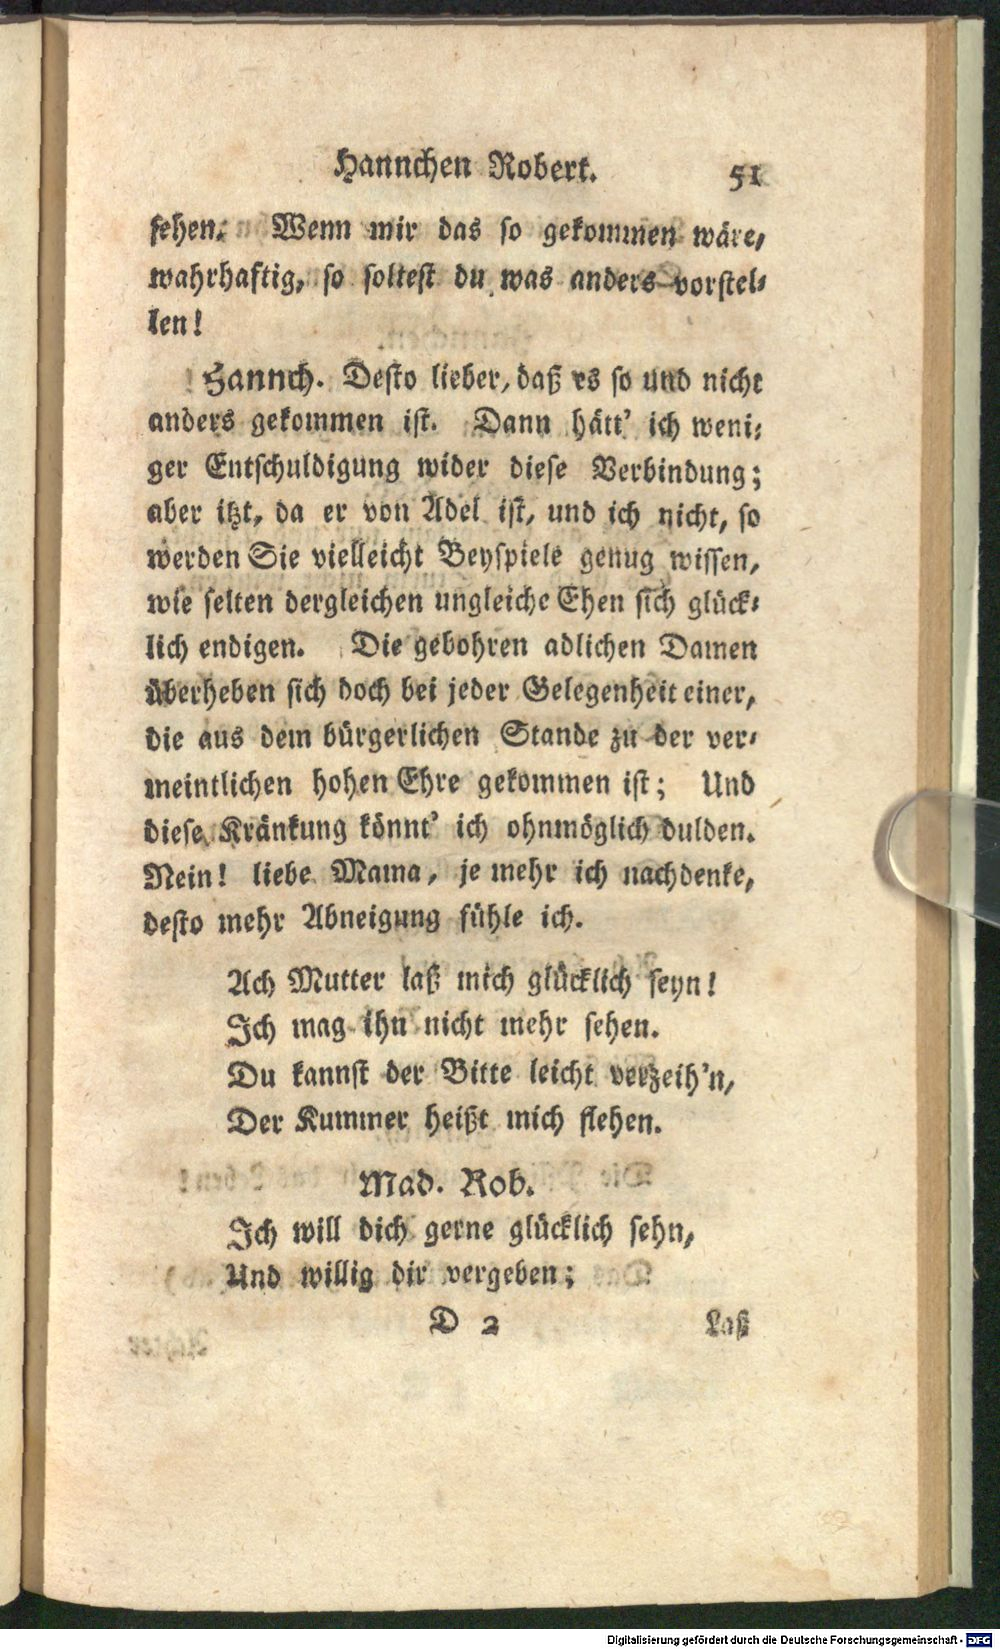 Hannchen Robert. 51
sehen. Wenn mir das so gekommen wäre,
wahrhaftig, so soltest du was anders vorstel-
len!
Hannch. Desto lieber, daß es so und nicht
anders gekommen ist. Dann hätt' ich weni-
ger Entschuldigung wider diese Verbindung;
aber itzt, da er von Adel ist, und ich nicht, so
werden Sie vielleicht Beyspiele genug wissen,
wie selten dergleichen ungleiche Ehen sich glück-
lich endigen. Die gebohren adlichen Damen
überheben sich doch bei jeder Gelegenheit einer,
die aus dem bürgerlichen Stande zu der ver-
meintlichen hohen Ehre gekommen ist; Und
diese Kränkung könnt' ich ohnmöglich dulden.
Nein! liebe Mama, je mehr ich nachdenke,
desto mehr Abneigung fühle ich.
Ach Mutter laß mich glücklich seyn!
Ich mag ihn nicht mehr sehen.
Du kannst der Bitte leicht verzeih'n,
Der Kummer heißt mich flehen.
Mad. Rob.
Ich will dich gerne glücklich sehn,
Und willig dir vergeben;
D 2 Laß
Digitalisierung gefördert durch die Deutsche Forschungsgemeinschaft - DFG